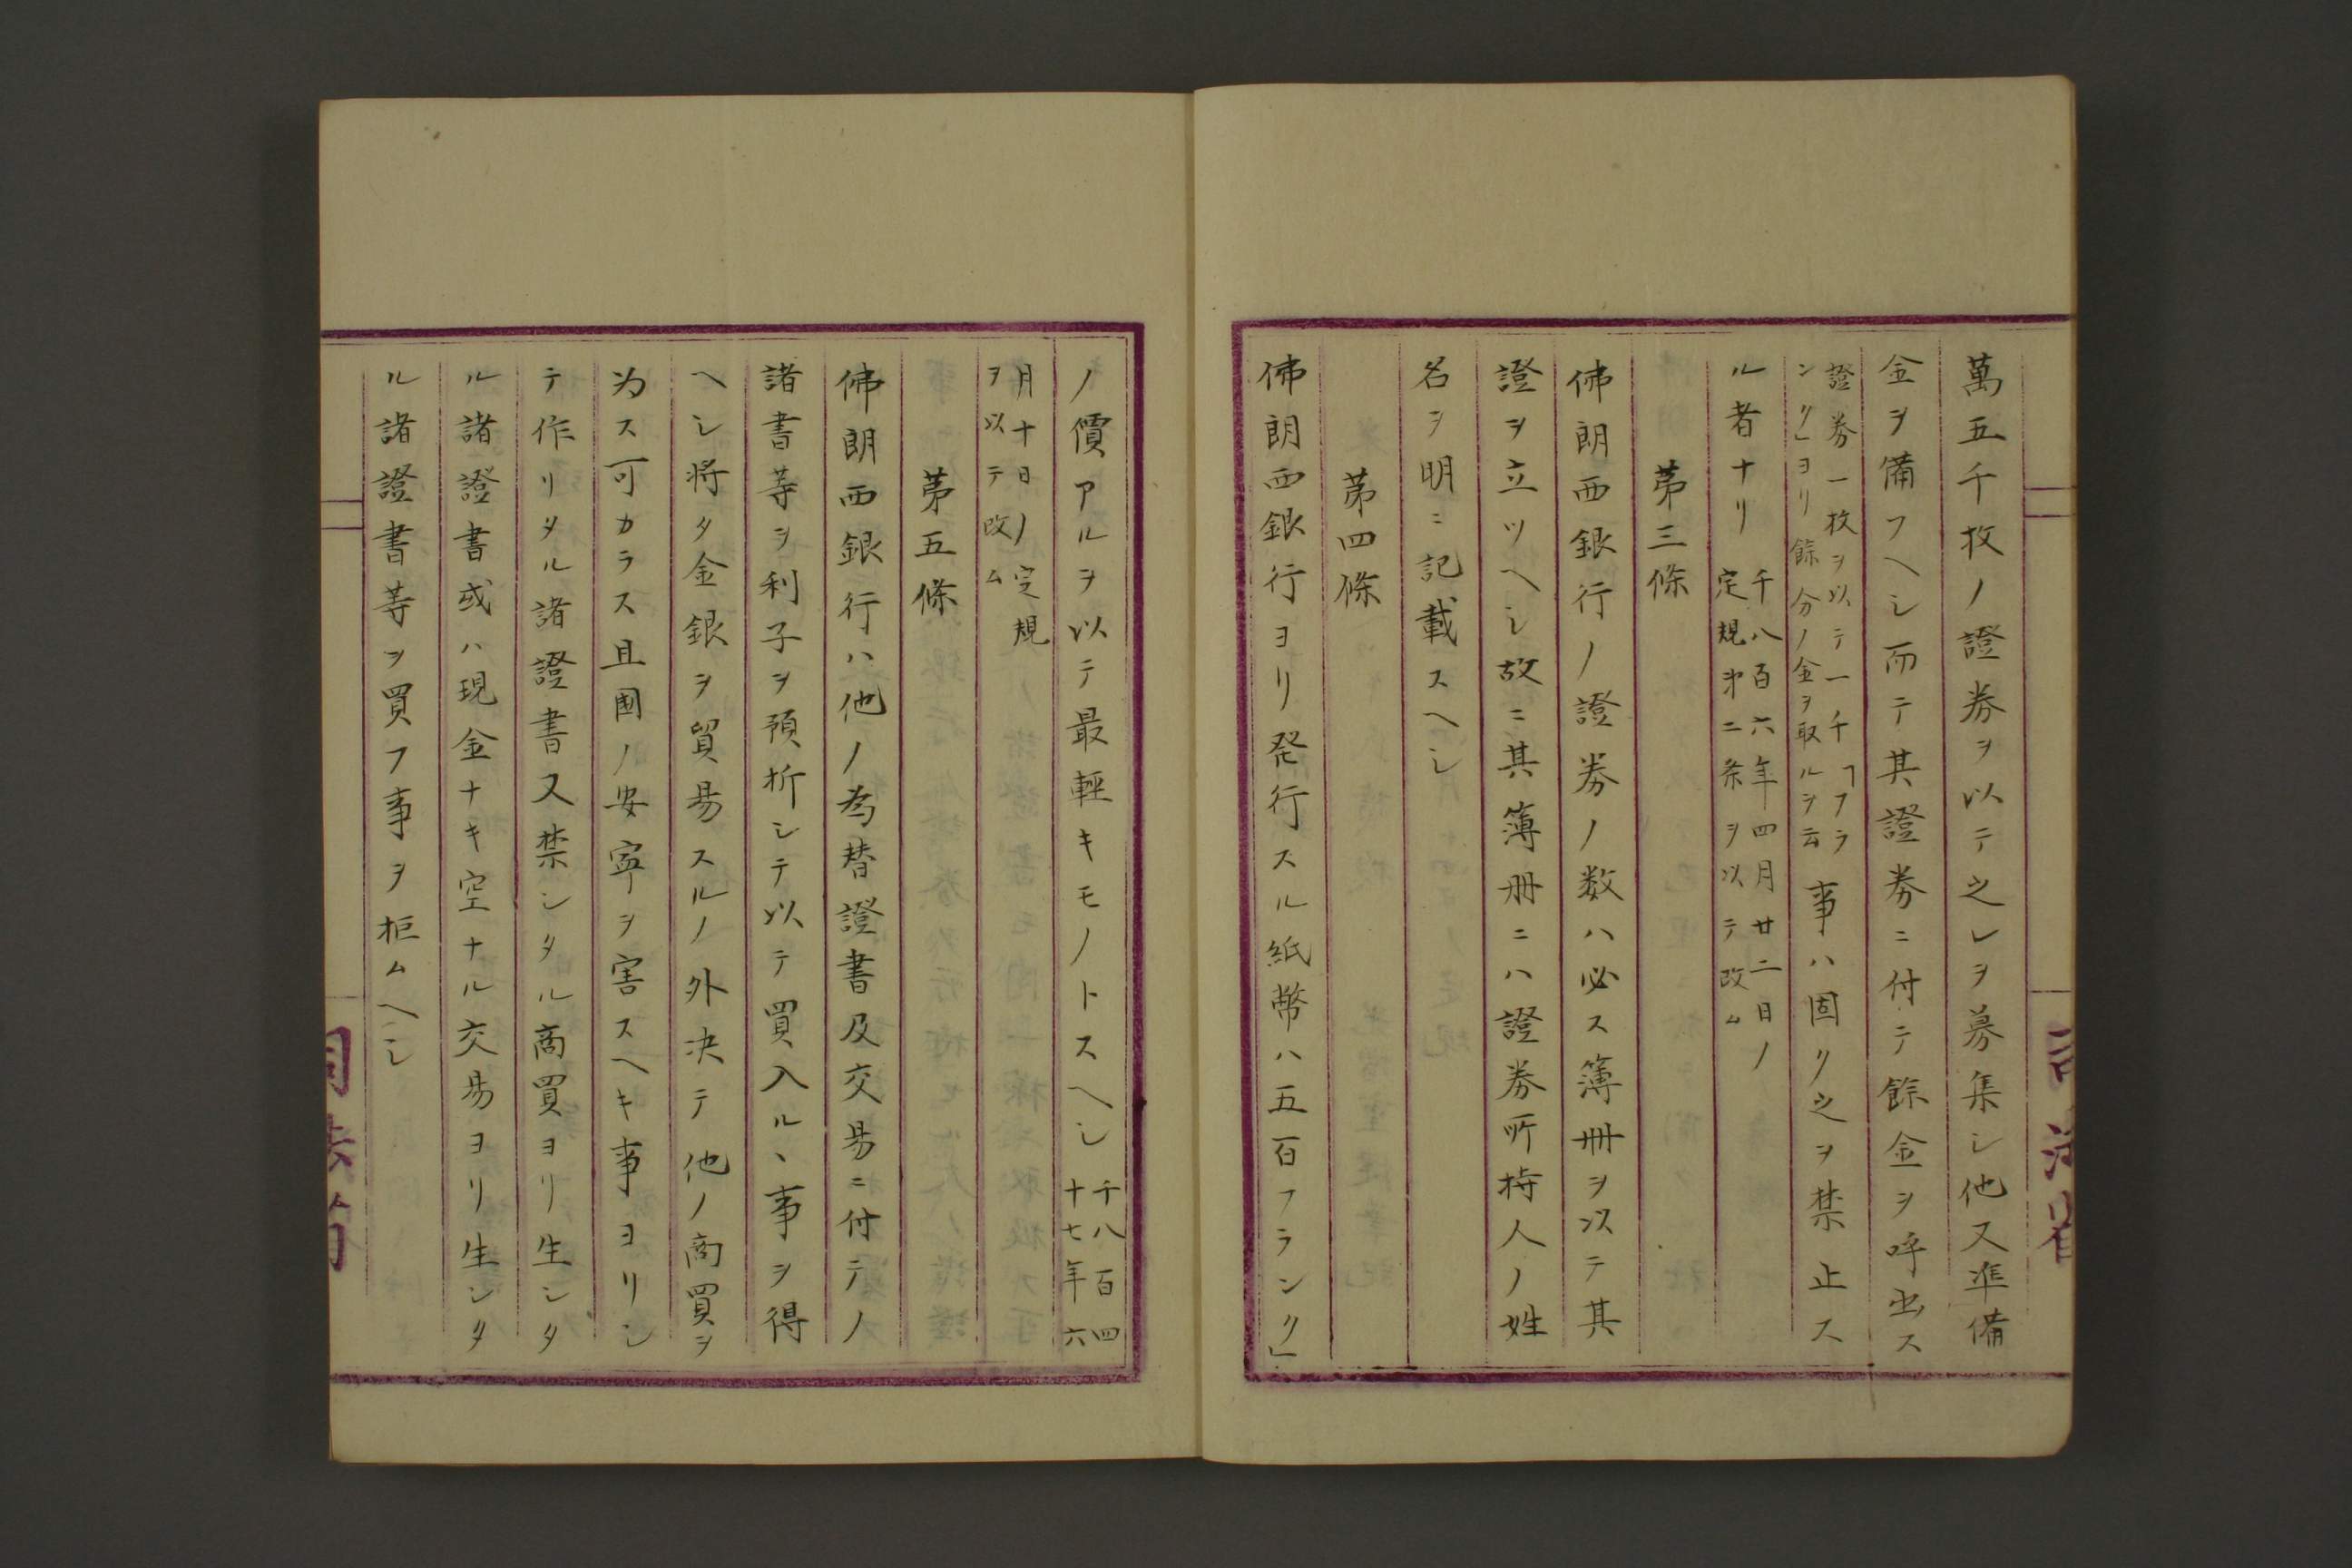 萬五千枚ノ證券ヲ以テ之レヲ募集シ他又準備
金ヲ備フヘシ而テ其證券ニ付テ餘金ヲ呼出ス
證券一枚ヲ以テ一千「フラ
ンク」ヨリ餘分ノ金ヲ取ルヲ云
事ハ固ク之ヲ禁止ス
ル者ナリ
千八百六年四月廿二日ノ
定規第二条ヲ以テ改ム
第三條
佛朗西銀行ノ證券ノ数ハ必ス簿冊ヲ以テ其
證ヲ立ツヘシ故ニ其簿冊ニハ證券所持人ノ姓
名ヲ明ニ記載スヘシ
第四條
佛朗西銀行ヨリ発行スル紙幣ハ五百フランク」
ノ價アルヲ以テ最輕キモノトスヘシ
千八百四
十七年六
月十日ノ定規
ヲ以テ改ム
第五條
佛朗西銀行ハ他ノ為替證書及交易ニ付テノ
諸書等ヲ利子ヲ預折シテ以テ買入ルヽ事ヲ得
ヘシ将タ金銀ヲ貿易スルノ外决テ他ノ商買ヲ
为ス可カラス且國ノ安寧ヲ害スヘキ事ヨリシ
テ作リタル諸證書又禁シタル商買ヨリ生シタ
ル諸證書或ハ現金ナキ空ナル交易ヨリ生シタ
ル諸證書等ヲ買フ事ヲ拒ムヘシ
司法省